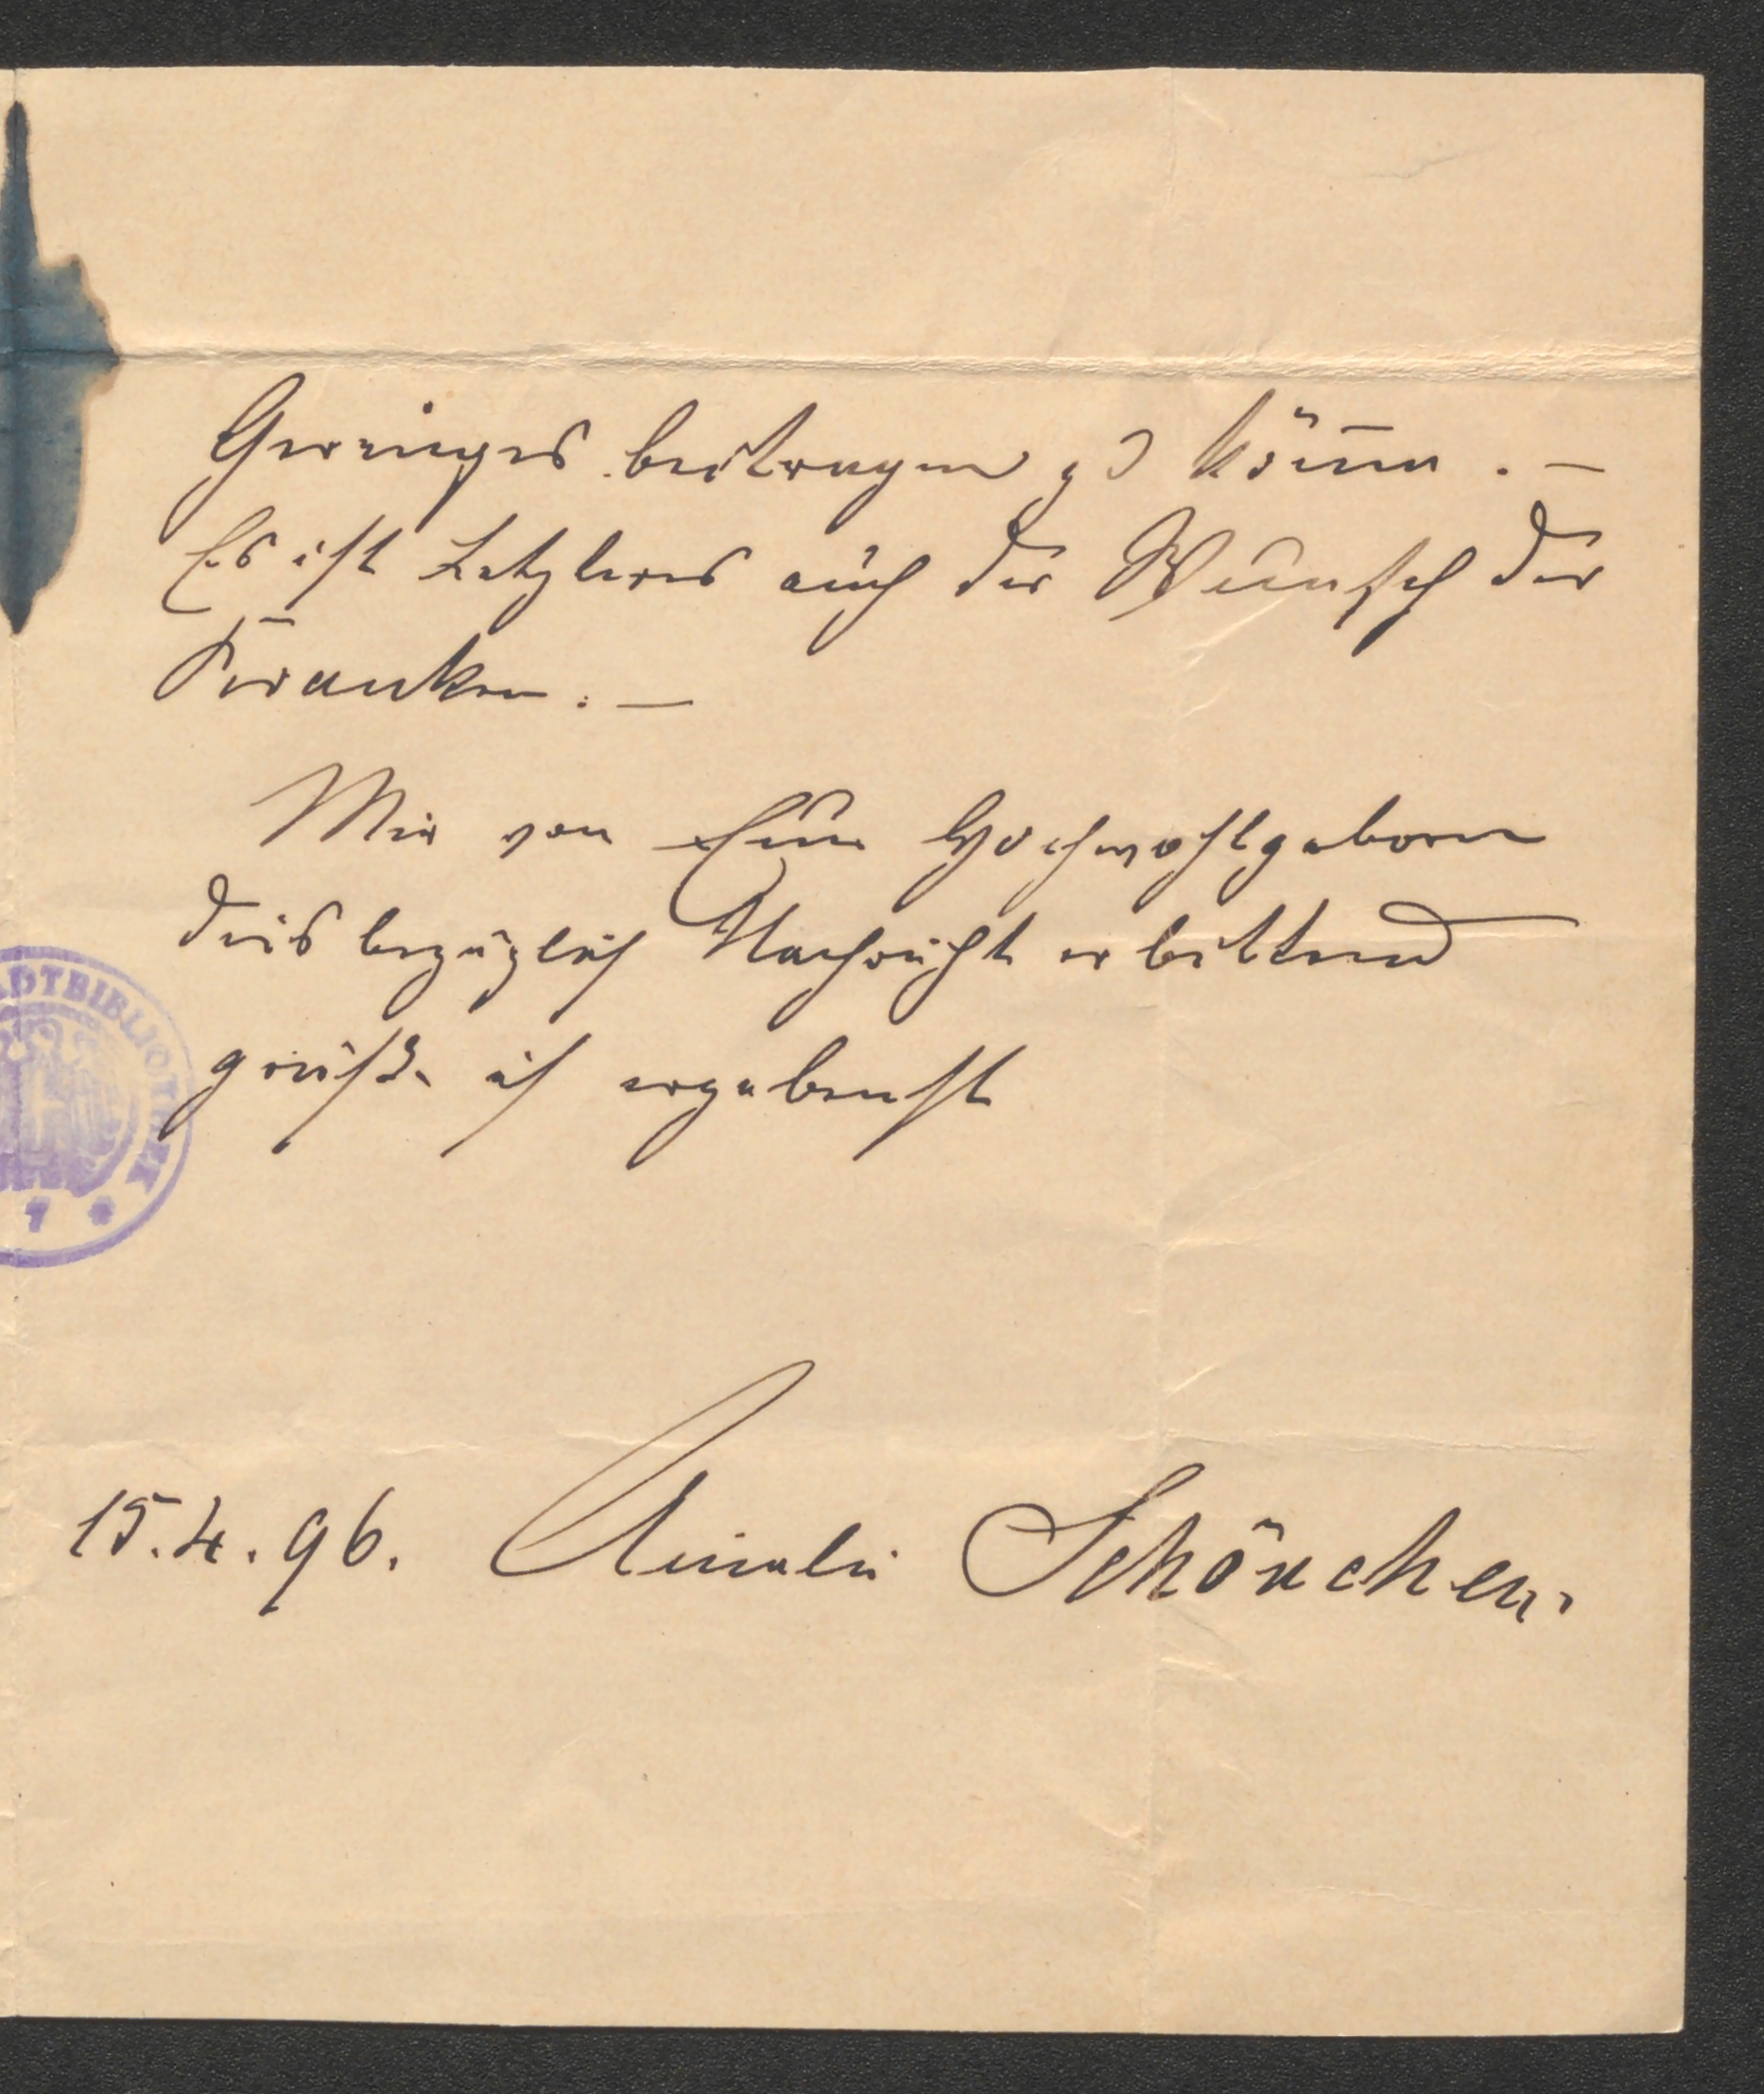 Geringes beitragen zu könn̄en. —
Es ist Letzteres auch der Wunsch der
Kranken. —
Mir von Euer Hochwohlgeboren
diesbezüglich Nachricht erbittend
grüße ich ergebenst
15.4.96. Amalie Schönchen.
ADTBIBLIOTHEK
7 *